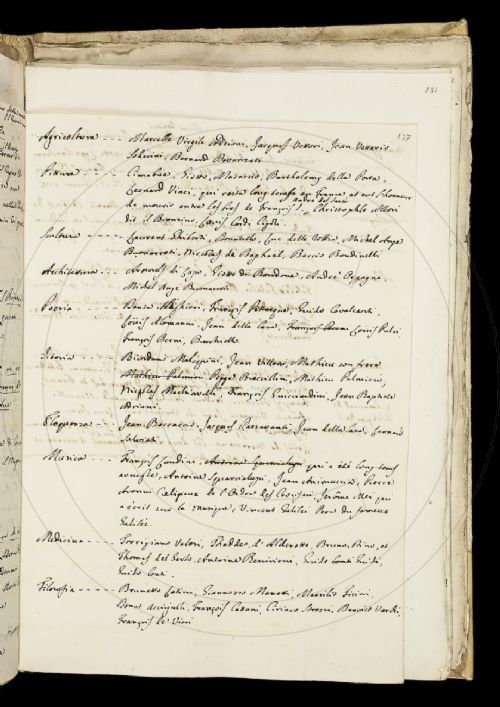 131
127
Agricoltura - - - Marcello Virgile Adriani, Jacques Vettori, Jean Vettorio
Soderini, Bernard Davanzati
Pittura - - - Cimabue, Giotto, Masaccio, Barthelemy della Porta,
Leonard Vinci, qui resta long temps en France et eut l'honneur
de mourir entre les bras de François I. Andre del Sarto Christophle Allori
dit il Bronzino, Louis Cardi Cigoli.
Scultura - - - Laurent Ghiberti, Donatello, Luc della Robbia, Michel Ange
Buonarroti, Nicolas de Raphael, Baccio Bandinelli
Architettura - - - Arnolf di Lapo, Giotto di Bondone, André Orgagna,
Michel Ange Buonarroti
Poesia - - - Dante Alighieri, François Petrarque, Guido Cavalcanti,
Louis Alemanni, Jean della Casa, Louis Pulci
François Berni, Burchiello.
Istoria - - - Ricordan Malespini, Jean Villani, Mathieu son frere
Mathieu Palmieri Poggio Bracciolini, Mathieu Palmieri,
Nicolas Machiavelli, François Guicciardini, Jean Baptiste
Adriani.
Eloquenza - - - Jean Boccacce, Jacques Passavanti, Jean della Casa, Leonard
Salviati.
Musica - - - François Landini, qui a été long temps
aveugle, Antoine Squarcialupi, Jean Animuccia, Pierre
Aronni Religieux de l'Ordre des, Jerôme Mei qui
a écrit sur la Musique, Vincent Galilei Pere du fameux
Galilée.
Medicina - - - Torrigiano Valori, Thaddeo d'Alderotto, Bruno, Dino, et
Thomas del Garbo, Antoine Benivieni, Guido Guidi,
Guido
Filosofia - - - Brunetto Latini, Giannozzo Manetti, Marsilio Ficini,
Donat Acciajuoli, François Cattani, Ciriaco Strozzi, Benoist Varchi,
François de Vieri